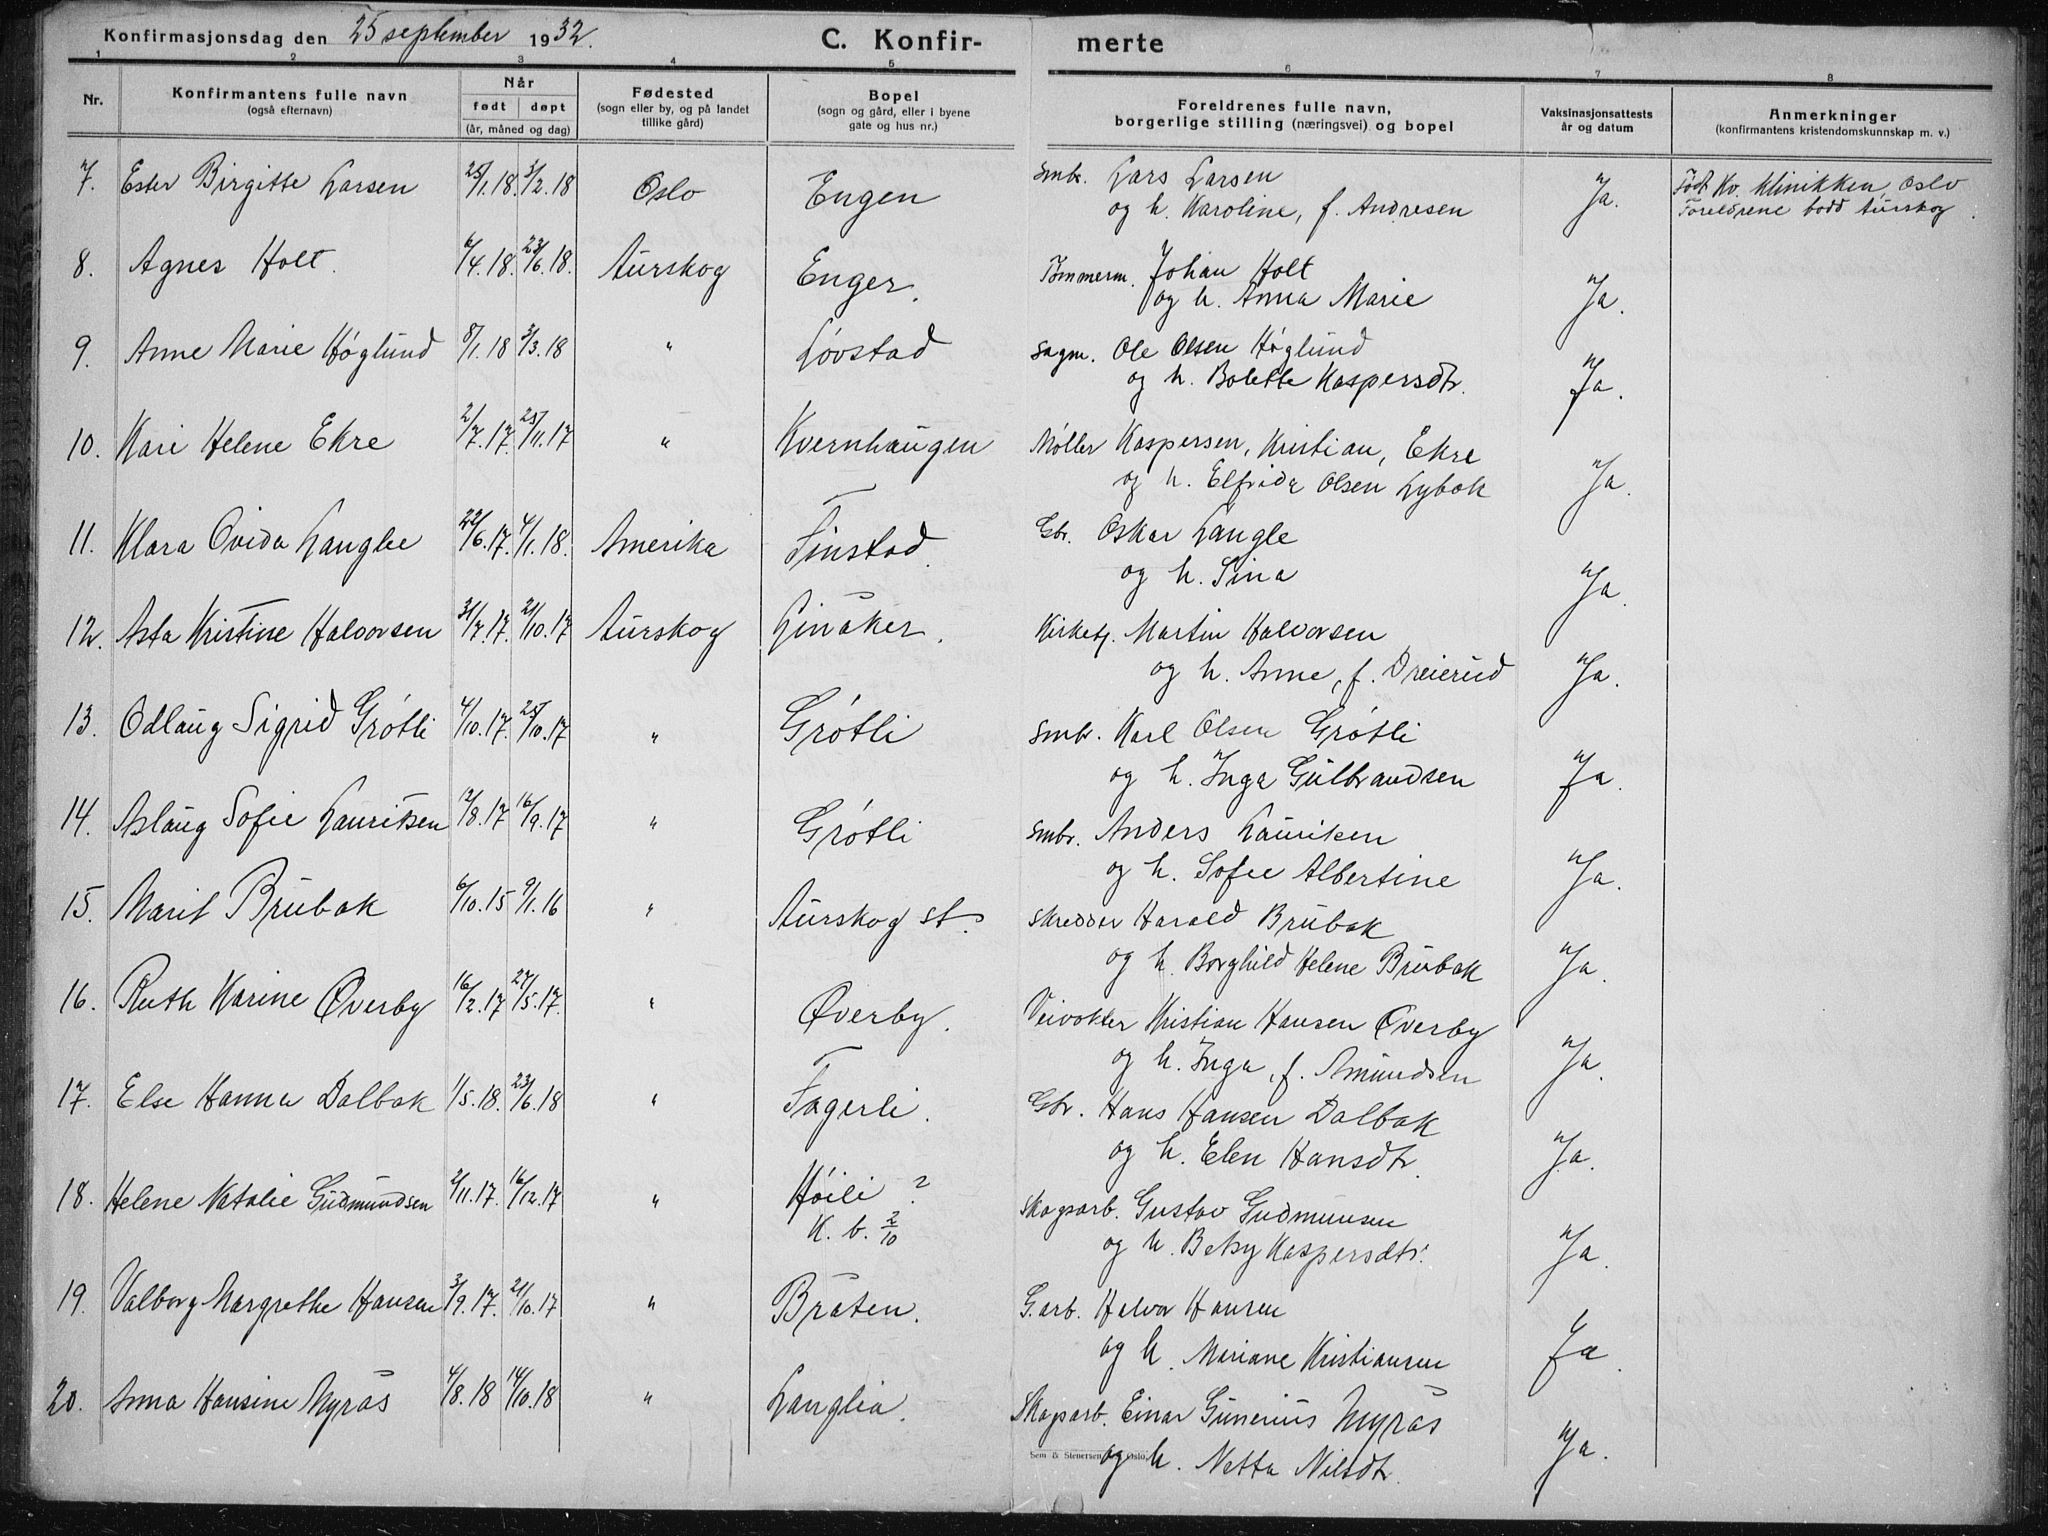 Konfirmasjonsdag den 25 september 1932. C. Konfir- merte
1 2 3 4 5 6 7 8
Nr. Konfirmantens fulle navn (også efternavn) Når født døpt (år, måned og dag) Fødested (sogn eller by, og på landet tillike gård) Bopel (sogn og gård, eller i byene gate og hus nr.) Foreldrenes fulle navn, borgerlige stilling (næringsvei) og bopel Vaksinasjonsattests år og datum Anmerkninger (konfirmantens kristendomskunnskap m. v.)
7. Ester Birgitte Larsen 25/1.18. 3/2.18 Oslo Engen Smbr. Lars Larsen Ja. Født Kv. klinikken, Oslo
og h. Karoline, f. Andresen Foreldrene bodd Aurskog.
8. Agnes Holt. 6/4.18. 23/6.18. Aurskog Enger. Tømmerm. Johan Holt
og h. Anna Marie Ja.
9. Anne Marie Høglund 8/1.18 3/3.18 " Løvstad Sagm. Ole Olsen Høglund
og h. Bolette Kaspersdtr. Ja.
10. Kari Helene Ekre 2/7.17. 25/11.17 " Kvernhaugen Møller Kaspersen, Kristian, Ekre
og h. Elfrida Olsen Lybæk Ja.
11. Klara Ovida Langlie 22/6.17. 4/1.18. Amerika Finstad. Gbr. Oskar Langle
og h. Sina Ja.
12. Asta Kristine Halvorsen 31/7.17. 21/10.17 Aurskog Linåker. Kirketj. Martin Halvorsen
og h. Anne, f. Dreierud Ja.
13. Odlaug Sigrid Grøtli 4/10.17. 25/10.17 " Grøtli Smbr. Karl Olsen Grøtli
og h. Inga Gulbrandsen Ja.
14. Aslaug Sofie Lauritsen 12/8.17 16/9.17 " Grøtli Smbr. Anders Lauriksen
og h. Sofie Albertine Ja.
15. Marit Brubak 6/10.15 9/1.16 " Aurskog st. Skredder Harald Brubak
og h. Borghild Helene Brubak Ja.
16. Ruth Karine Øverby 16/2.17 27/5.17. " Øverby. Veivokter Kristian Hansen Øverby
og h. Inga, f. Amundsen Ja.
17. Else Hanna Dalbak 1/5.18. 23/6.18 " Fagerli. Gbr. Hans Hansen Dalbak
og h. Elen Hansdtr. Ja.
18. Helene Natalie Gudmundsen 2/11.17. 16/12.17 " Høili ? Skogsarb. Gustav Gudmunsen
K. b. 2/10 og h. Betsy Kaspersdtr. Ja.
19. Valborg Margrethe Hansen 3/9.17. 21/10.17 " Bråten. G.arb. Halvor Hansen
og h. Mariane Kristiansen Ja.
20. Anna Hansine Myrås 4/8.18 14/10.18 " Langlia. Skogsarb. Einar Gunerius Myrås
Sem & Stenersen Oslo.
og h. Netta Nilsdtr. Ja.